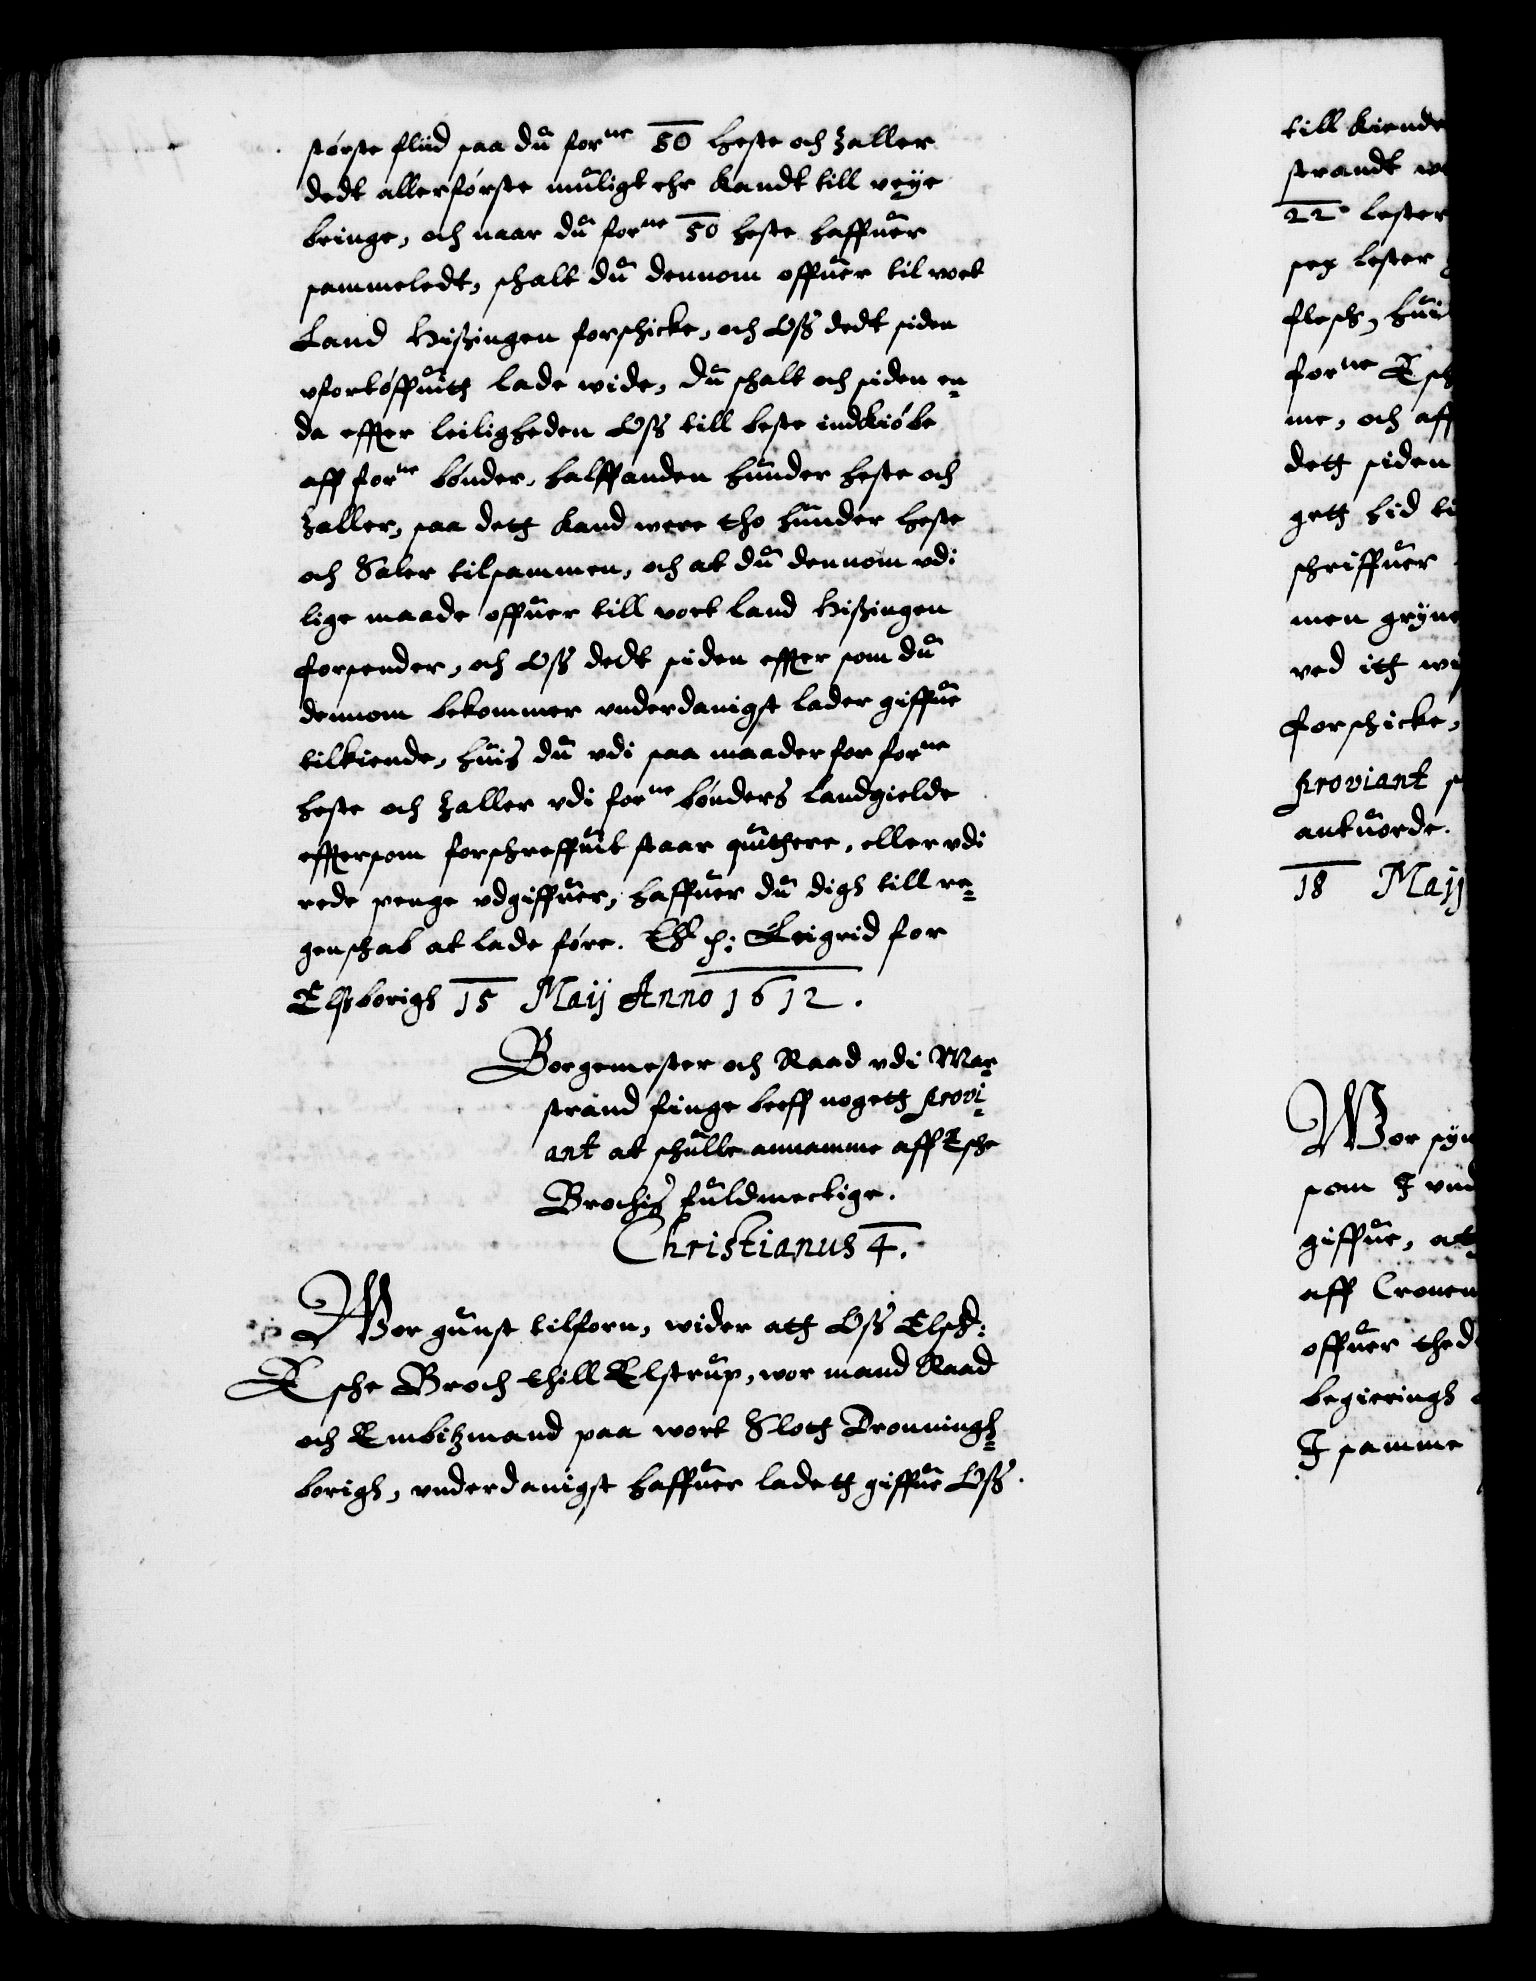 største fliid saa du forne 50 heste och zaller
dedt allerførste muligt ehr kandt till veye
bringe, och naar du forne 50 heste haffuer
sammeledt, schalt du dennom offuer til vort
Land Hisingen forschicke, och Oss dedt siden
vfortøffuith lade wide, du schalt och siden en-
da effter leiligheden Oss till beste indkiøbe
aff forne bønder, halffanden hunder heste och
zaller, saa deth kand were tho hunder heste
och Saler tilsammen, och at du dennom vdi
lige maade offuer till vort land Hisingen
forsender, och Oss dedt siden effter som du
dennom bekommer vnderdanigst lader giffue
tilkiende, huis du vdi saa maader for forne
heste och zaller vdi forne bønders landgielde
efftersom forschreffuit staar quithere, eller vdi
rede penge vdgiffuer, haffuer du digh till re-
genschab at lade føre. Leigrid for
Elsborigh 15 Maij Anno 1612.
Borgemester och Raad vdi Mar-
strand finge breff nogeth provi-
ant at schulle annamme aff Esche
Brochis fuldmectige.
Christianus 4.
Wor gunst tilforn, wider ath Oss Elsch:
Esche Broch thill Elstrup, wor mand Raad
och Embitzmand paa wort Sloth Dronningh-
borigh, vnderdanigst haffuer ladeth giffue Oss
till kiende
strandt
22 lester
sex lester
flesch,
forne Esch
me, och aff
deth siden
geth hid
schriffuer
men gryne
ved ith
forschicke,
proviant
antuorde.
18 Maij
Wor syn
som I vnd
giffue, at
aff Cronen
offuer thed
begierings
I samme